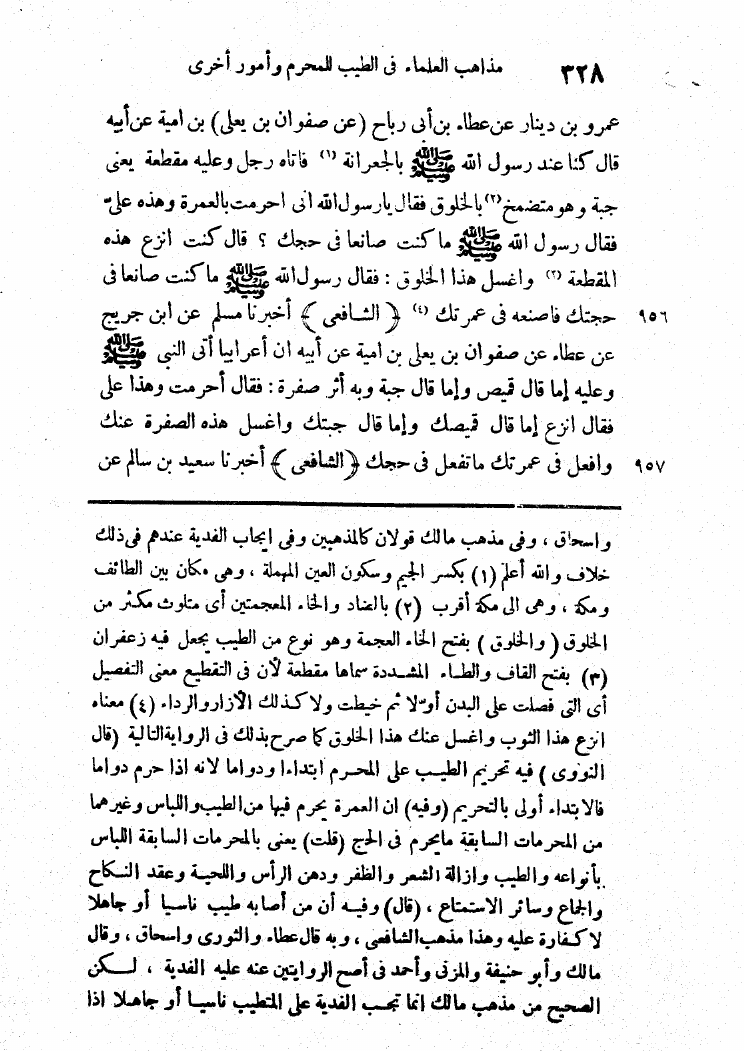 ٣٢٨ مذاهب العلماء فى الطيب للمحرم وأمور أخرى
عمرو بن دينار عن عطاء بن أبى رباح (عن صفوان بن يعلى) بن امية عن أبيه
قال كنا عند رسول الله ﷺ بالجعرانة (١) فاتاه رجل وعليه مقطعة يعنى
جبة وهو متضمخ (٢) بالخلوق فقال يارسول الله انى احرمت بالعمرة وهذه علىّ
فقال رسول الله ﷺ ما كنت صانعا فى حجك ؟ قال كنت انزع هذه
المقطعة (٣) واغسل هذا الخلوق : فقال رسول الله ﷺ ما كنت صانعا فى
٩٥٦ حجتك فاصنعه فى عمرتك (٤) ﴿ الشافعى ﴾ أخبرنا مسلم عن ابن جريج
عن عطاء عن صفوان بن يعلى بن امية عن أبيه ان أعرابيا أتى النبى ﷺ
وعليه إما قال قميص وإما قال جبة وبه أثر صفرة : فقال أحرمت وهذا على
فقال انزع إما قال قميصك وإما قال جبتك واغسل هذه الصفرة عنك
٩٥٧ وافعل فى عمرتك ماتفعل فى حجك ﴿الشافعى﴾ أخبرنا سعيد بن سالم عن
واسحاق ، وفى مذهب مالك قولان كالمذهبين وفى ايجاب الفدية عندهم فى ذلك
خلاف والله أعلم (١) بكسر الجيم وسكون العين المهملة ، وهى مكان بين الطائف
ومكة ، وهى الى مكة أقرب (٢) بالضاد والخاء المعجمتين أى متلوث مكثر من
الخلوق (والخلوق) بفتح الخاء العجمة وهو نوع من الطيب يجعل فيه زعفران
(٣) بفتح القاف والطاء المشددة سماها مقطعة لأن فى التقطيع معنى التفصيل
أى التى فصلت على البدن أوّلا ثم خيطت ولا كذلك الأزار والرداء (٤) معناه
انزع هذا الثوب واغسل عنك هذا الخلوق كما صرح بذلك فى الرواية التالية (قال
النووى) فيه تحريم الطيب على المحرم ابتداءا ودواما لانه اذا حرم دواما
فالابتداء أولى بالتحريم (وفيه) ان العمرة يحرم فيها من الطيب واللباس وغيرهما
من المحرمات السابقة مايحرم فى الحج (قلت) يعنى بالمحرمات السابقة اللباس
بأنواعه والطيب وازالة الشعر والظفر ودهن الرأس واللحية وعقد النكاح
والجماع وسائر الاستمتاع ، (قال) وفيه أن من أصابه طيب ناسيا أو جاهلا
لا كفارة عليه وهذا مذهب الشافعى ، وبه قال عطاء والثورى واسحاق ، وقال
مالك وأبو حنيفة والمزنى وأحمد فى أصح الروايتين عنه عليه الفدية ، لكن
الصحيح من مذهب مالك انما تجب الفدية على المتطيب ناسيا أو جاهلا اذا